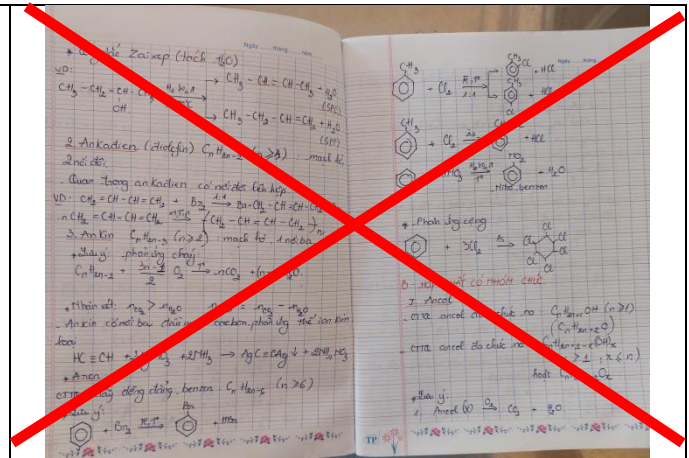 * Quy tắc Zaixep (tách H₂O)
VD:
CH₃ - CH₂ - CH - CH₃ H₂SO₄đ → CH₃ - CH = CH - CH₃ + H₂O
OH
(SPC)
CH₃ - CH₂ - CH = CH₂ + H₂O
(SPP)
2. Ankadien (điolefin) CnH2n-2 (n ≥ 3) mạch hở,
2 nối đôi.
- Quan trọng ankadien có nối đôi liên hợp
VD: CH₂ = CH - CH = CH₂ + Br₂ 1:4 → Br - CH₂ - CH = CH - CH₂
n CH₂ = CH - CH = CH₂ → (CH₂ - CH = CH - CH₂)n
3. Ankin CnH2n-2 (n ≥ 2) mạch hở, 1 nối ba
* Lưu ý: phản ứng cháy:
CnH2n-2 + O₂ t° → nCO₂ + (n-1)H₂O.
* Nhận xét: nCO₂ > nH₂O n = nCO₂ - nH₂O
- Ankin có nối ba đầu mạch cacbon, phản ứng thế ion kim
loại
HC ≡ CH + 2NH₃ → AgC ≡ CAg ↓ + 2NH₄NO₃
* Aren
CTTQ dãy đồng đẳng benzen: CnH2n-6 (n ≥ 6)
* Lưu ý:
+ Br₂ Fe, t° → Br + HBr
Ngày tháng năm
CH₃ + Cl₂ Fe, t° 1:1 → CH₃ Cl + HCl
CH₃ Cl + HCl
CH₃ + Cl₂ as → + HCl
HNO₃ H₂SO₄đ t° → NO₂ + H₂O
Nitro benzen
* Phản ứng cộng
+ 3Cl₂ as → Cl Cl Cl Cl Cl Cl
B - HỢP CHẤT CÓ NHÓM CHỨC
I. Ancol
- CTTQ ancol đơn chức no CnH2n+1OH (n ≥ 1)
(CnH2n+2O)
- CTTQ ancol đa chức no CnH2n+2-x(OH)x
x > 1, x ≤ n)
hoặc CnH2n+2Ox
* Lưu ý:
1. Ancol (X) O₂ → CO₂ + H₂O
TP